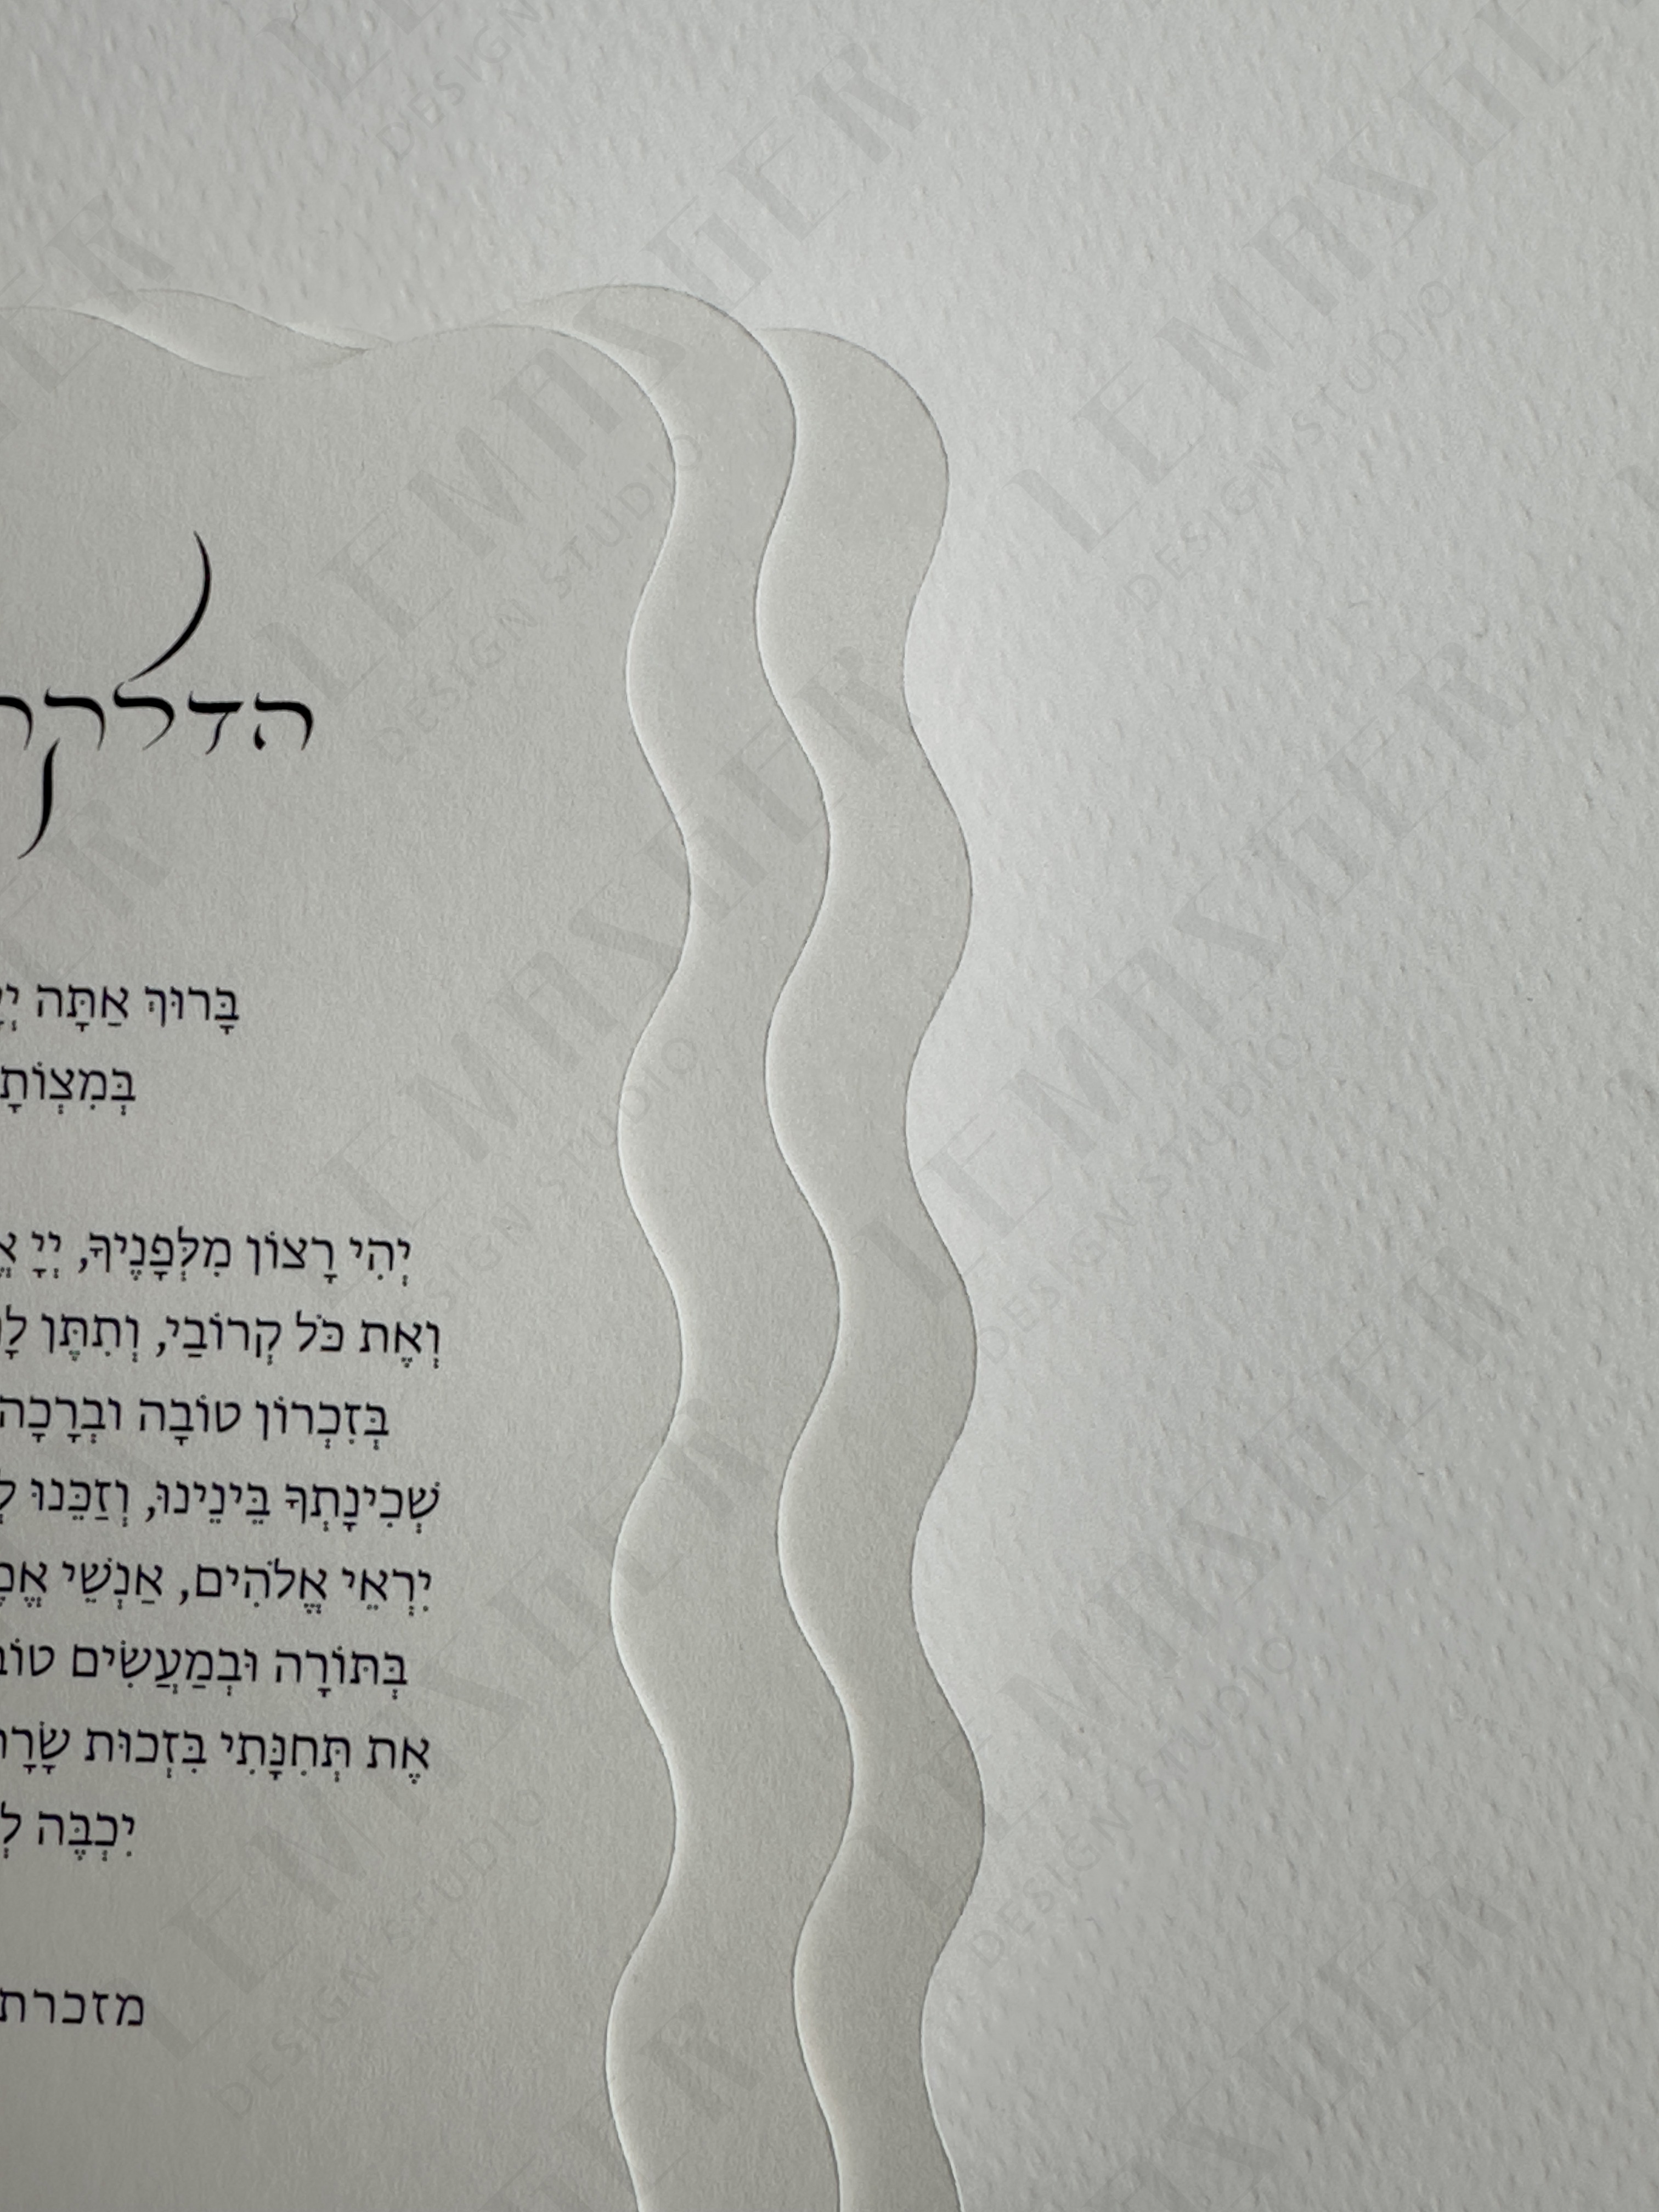 בָּרוּךְ אַתָּה
בְּמִצְוֹתָ
יְהִי רָצוֹן מִלְּפָנֶיךָ, יְיָ
וְאֶת כֹּל קְרוֹבַי, וְתִתֶּן
בְּזִכְרוֹן טוֹבָה וּבְרָכָה
שְׁכִינָתְךָ בֵּינֵינוּ, וְזַכֵּנוּ
יִרְאֵי אֱלֹהִים, אַנְשֵׁי
בְּתּוֹרָה וּבְמַעֲשִׂים
אֶת תְּחִנָּתִי בִּזְכוּת
יִכְבֶּה
מזכרת
LEMAYER
DESIGN STUDIO